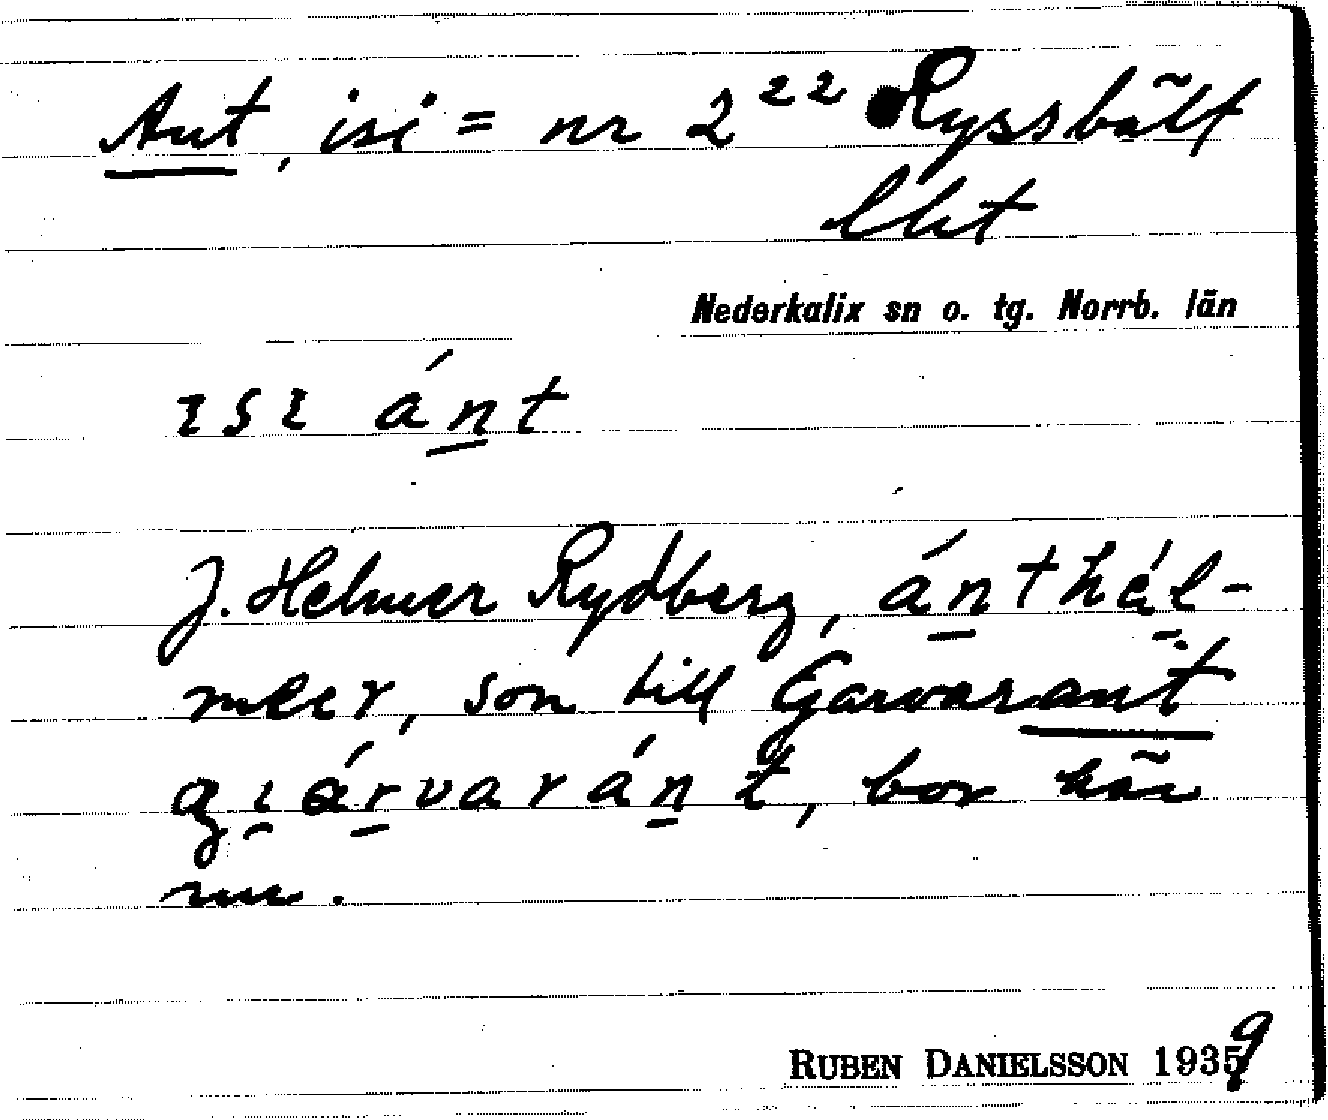 Ant, isi = nr 2²² Ryssbält
lht
Nederkalix sn o. tg. Norrb. län
ısı ánt
J. Helmer Rydberg, ánthál-
meer, son till Garvarant
gıárvaránt, bor här
nu.
RUBEN DANIELSSON 1939